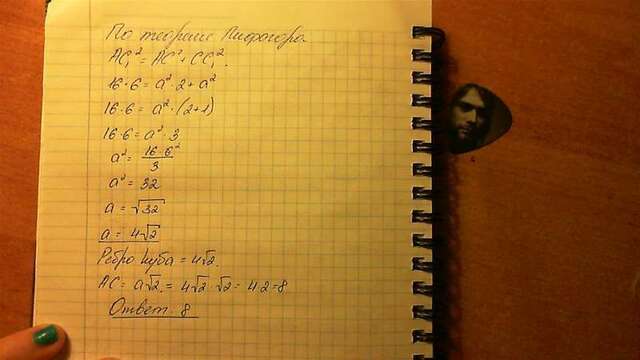 По теореме Пифагора.
AC₁² = AC² + CC₁².
16·6 = a²·2 + a²
16·6 = a²·(2+1)
16·6 = a²·3
a² = 16·6² / 3
a² = 32
a = √32
a = 4√2
Ребро куба = 4√2.
AC = a√2 = 4√2·√2 = 4·2 = 8
Ответ: 8